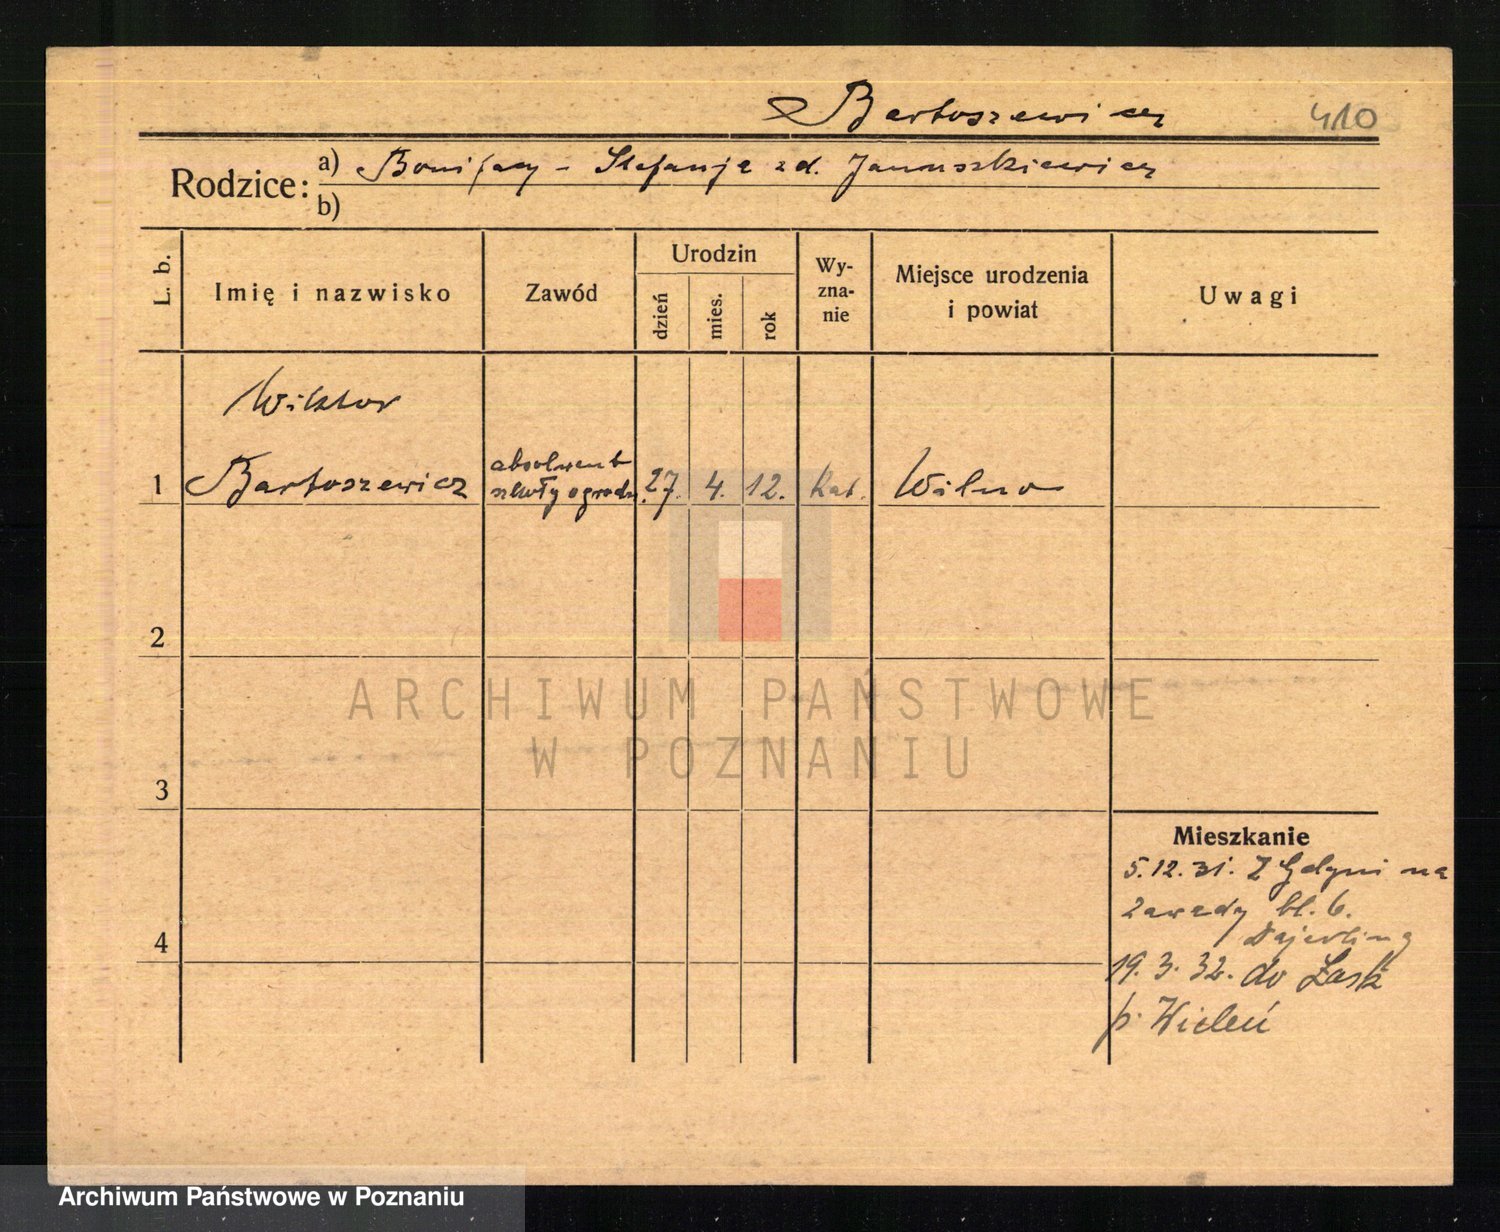 Bartoszewicz 410
Rodzice: a) Bonifacy - Stefanja zd. Januszkiewicz
b)
L. b. Imię i nazwisko Zawód Urodzin dzień mies. rok Wy-
zna-
nie Miejsce urodzenia
i powiat Uwagi
Wiktor
absolwent
1 Bartoszewicz szkoły ogrodn. 27. 4. 12. kat. Wilno
2
3
4
Mieszkanie
5.12.31. Z Gdyni na
Zawady bl. 6.
19.3.32. do
p. Wieleń
ARCHIWUM PAŃSTWOWE
W POZNANIU
Archiwum Państwowe w Poznaniu